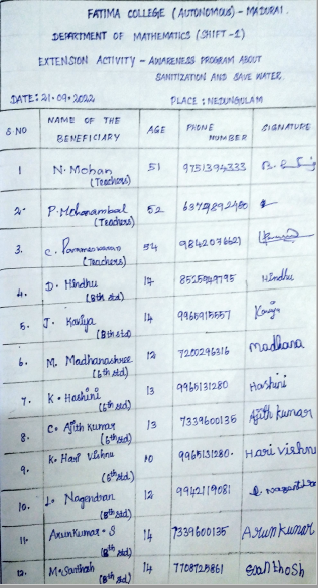 FATIMA COLLEGE (AUTONOMOUS) - MADURAI.
DEPARTMENT OF MATHEMATICS (SHIFT-I)
EXTENSION ACTIVITY - AWARENESS PROGRAM ABOUT
SANITIZATION AND SAVE WATER.
DATE: 21.09.2022 PLACE: NEDUNGULAM
S NO NAME OF THE BENEFICIARY AGE PHONE NUMBER SIGNATURE
1 N. Mohan (Teachers) 51 9751394333
2. P. Mohanambal (Teachers) 52
3. C. Parameswaran (Teachers) 54 9842076621
4. D. Hindhu (8th std) 8525949795 Hindhu
5. J. Kaviya (8th std) 14 9965915557 Kaviya
6. M. Madhanashree (6th std) 12 7200296316 Madhana
7. K. Hashini (6th std) 13 9965131280 Hashini
8. C. Ajith kumar (6th std) 13 7339600135 Ajith kumar
9. K. Hari Vishnu (5th std) 10 9965131280. Hari vishnu
10. Nagendran (6th std) 12 9942119081
11. Arun Kumar. S (8th std) 14 7339600135 Arun kumar
12. M. Santhosh (8th std) 14 7708725861 Santhosh